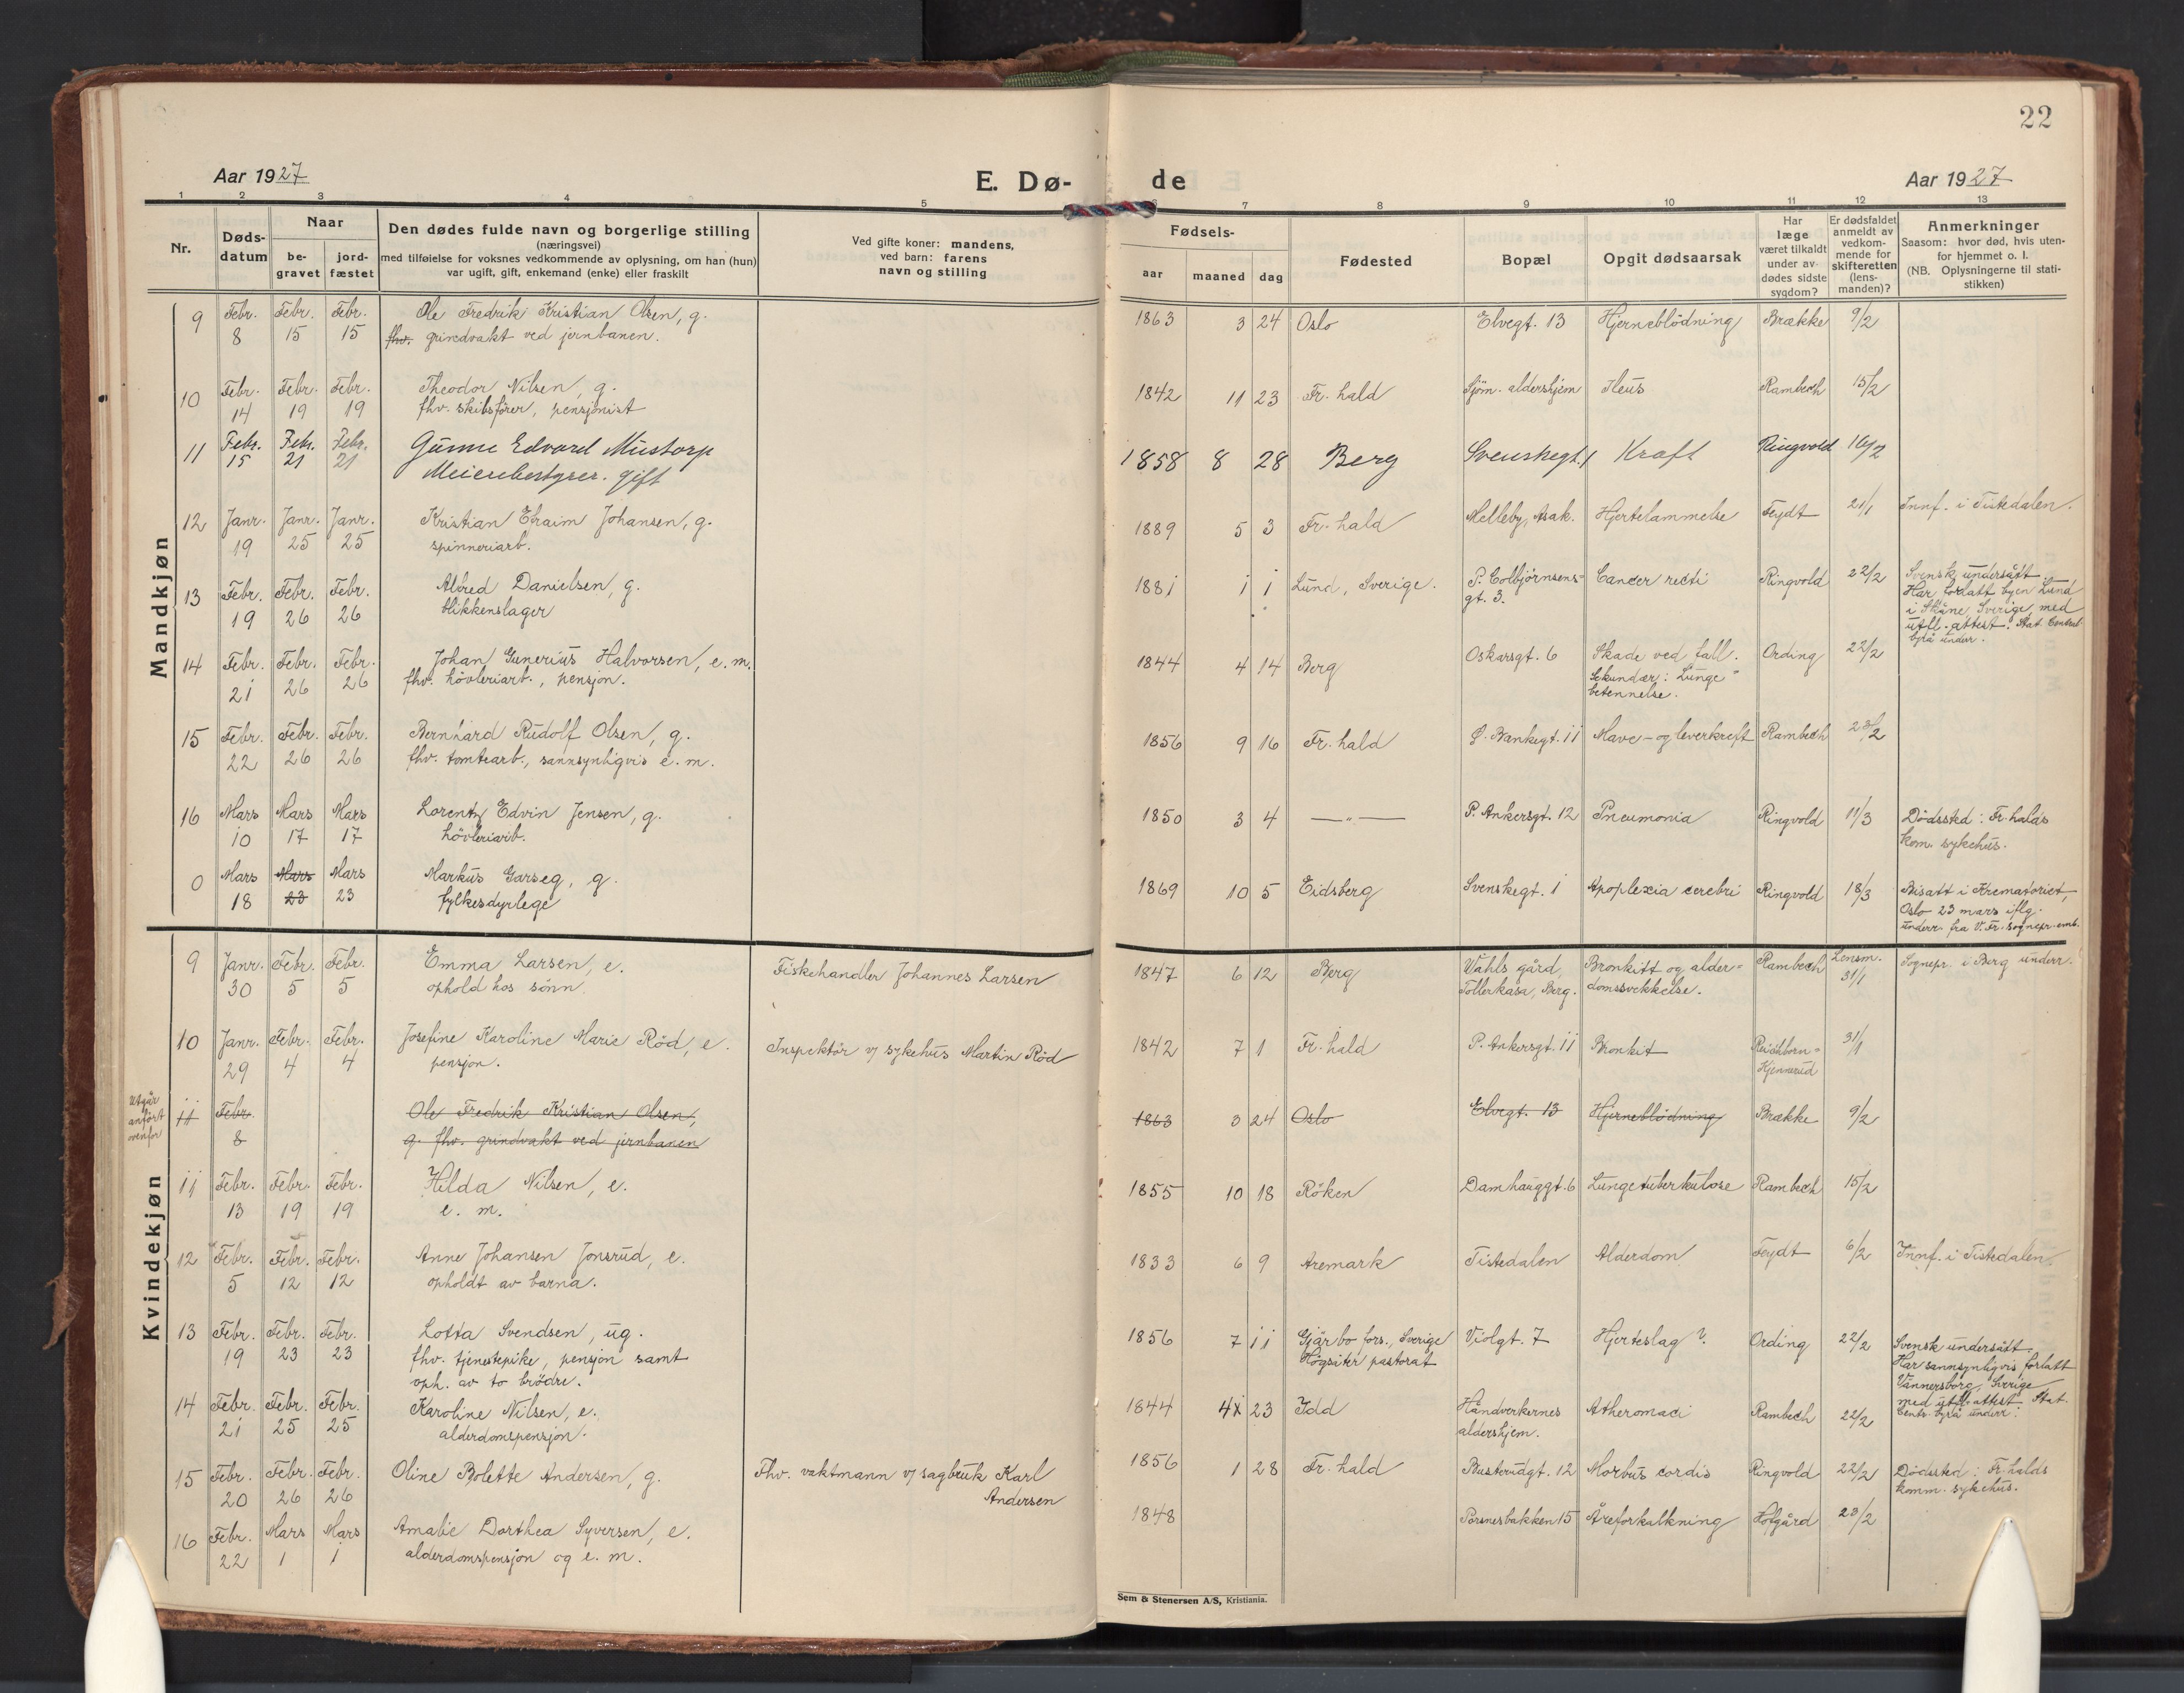 22
Aar 1927
E. Dø-
de
Aar 1927
1 2 3 4 5 6 7 8 9 10 11 12 13
Nr.
Døds-
datum
Naar
be-
gravet
jord-
fæstet
Den dødes fulde navn og borgerlige stilling
(næringsvei)
med tilføielse for voksnes vedkommende av oplysning, om han (hun)
var ugift, gift, enkemand (enke) eller fraskilt
Ved gifte koner: mandens,
ved barn: farens
navn og stilling
Fødsels-
aar maaned dag
Fødested
Bopæl
Opgit dødsaarsak
Har
læge
været tilkaldt
under av-
dødes sidste
sygdom?
Er dødsfaldet
anmeldt av
vedkom-
mende for
skifteretten
(lens-
manden)?
Anmerkninger
Saasom: hvor død, hvis uten-
for hjemmet o. l.
(NB. Oplysningerne til stati-
stikken)
Mandkjøn
9 Febr. Febr. Febr. Ole Fredrik Kristian Olsen, g. 1863 3 24 Oslo Elvegt. 13 Hjerneblödning Brække 9/2
8 15 15 fhv. grindvakt ved jernbanen.
10 Febr. Febr. Febr. Theodor Nilsen, g. 1842 11 23 Fr.hald Sjöm. aldershjem Ileus Rambech 15/2
14 19 19 fhv. skibsfører, pensjonist
11 Febr. Febr. Febr. Gunne Edvard Mustorp 1858 8 28 Berg Svenskegt. 1 Kræft Ringvold 16/2
15 21 21 Meieribestyrer. gift
12 Janr. Janr. Janr. Kristian Efraim Johansen, g. 1889 5 3 Fr.hald Melleby, Asak. Hjertelammelse Feydt 21/1 Innf. i Tistedalen.
19 25 25 spinneriarb.
13 Febr. Febr. Febr. Alfred Danielsen, g. 1881 1 1 Lund, Sverige. P. Colbjörnsens- Cancer recti Ringvold 22/2 Svensk undersått.
19 26 26 blikkenslager gt. 3. Har forlatt byen Lund
i Skåne, Sverige, med
utfl. attest. Stat. Central
byrå underr.
14 Febr. Febr. Febr. Johan Gunerius Halvorsen, e.m. 1844 4 14 Berg Oskarsgt. 6 Skade ved fall. Ording 22/2
21 26 26 fhv. hövleriarb., pensjon. Sekundær: Lunge-
betennelse.
15 Febr. Febr. Febr. Bernhard Rudolf Olsen, g. 1856 9 16 Fr.hald Ø. Bankegt. 11 Mave- og leverkreft Rambech 23/2
22 26 26 fhv. tomtearb., sannsynligvis e.m.
16 Mars Mars Mars Lorentz Edvin Jensen, g. 1850 3 4 —"— P. Ankersgt. 12 Pneumonia Ringvold 11/3 Dödssted: Fr.halds
10 17 17 hövleriarb. kom. sykehus.
0 Mars Mars Mars Markus Garseg, g. 1869 10 5 Eidsberg Svenskegt. 1 Apoplexia cerebri Ringvold 18/3 Bisatt i Krematoriet,
18 23 23 fylkesdyrlege Oslo 23 mars iflg.
underr. fra V. Fr. sognepr.emb.
Kvindekjøn
9 Janr. Febr. Febr. Emma Larsen, e. Fiskehandler Johannes Larsen 1847 6 12 Berg Wahls gård, Bronkitt og alder- Rambech Lensm. Sognepr. i Berg underr.
30 5 5 ophold hos sönn. Tollerkasa, Berg. domssvekkelse. 31/1
10 Janr. Febr. Febr. Josefine Karoline Marie Röd, e. Inspektör v/ sykehus Martin Röd 1842 7 1 Fr.hald P. Ankersgt. 11 Bronkit Reichborn- 31/1
29 4 4 pensjon. Kjennerud
Utgår
anført
ovenfor
11 Febr. Ole Fredrik Kristian Olsen, 1863 3 24 Oslo Elvegt. 13 Hjerneblödning Brække 9/2
8 g. fhv. grindvakt ved jernbanen
11 Febr. Febr. Febr. Hilda Nilsen, e. 1855 10 18 Röken Damhauggt. 6 Lungetuberkulose Rambech 15/2
13 19 19 e. m.
12 Febr. Febr. Febr. Anne Johansen Jonsrud, e. 1833 6 9 Aremark Tistedalen Alderdom Feydt 6/2 Innf. i Tistedalen.
5 12 12 opholdt av barna.
13 Febr. Febr. Febr. Lotta Svendsen, ug. 1856 7 11 Gjärbo fors., Sverige Violgt. 7 Hjerteslag ?. Ording 22/2 Svensk undersått.
19 23 23 fhv. tjenestepike, pensjon samt pastorat Har sannsynligvis forlatt
oph. av to brödre. Vännersborg, Sverige
med utfl. attest. Stat.
Centr. byrå underr.
14 Febr. Febr. Febr. Karoline Nilsen, e. 1844 4 23 Idd Håndverkernes Atheromaci Rambech 22/2
21 25 25 alderdomspensjon. aldershjem.
15 Febr. Febr. Febr. Oline Bolette Andersen, g. Fhv. vaktmann v/ sagbruk Karl 1856 1 28 Fr.hald Busterudgt. 12 Morbus cordis Ringvold 22/2 Dödssted: Fr.halds
20 26 26 Andersen komm. sykehus.
16 Febr. Mars Mars Amalie Dorthea Syversen, e. 1848 Porsnesbakken 15 Åreforkalkning Hofgård 23/2
22 1 1 alderdomspensjon og e. m.
Sem & Stenersen A/S, Kristiania.